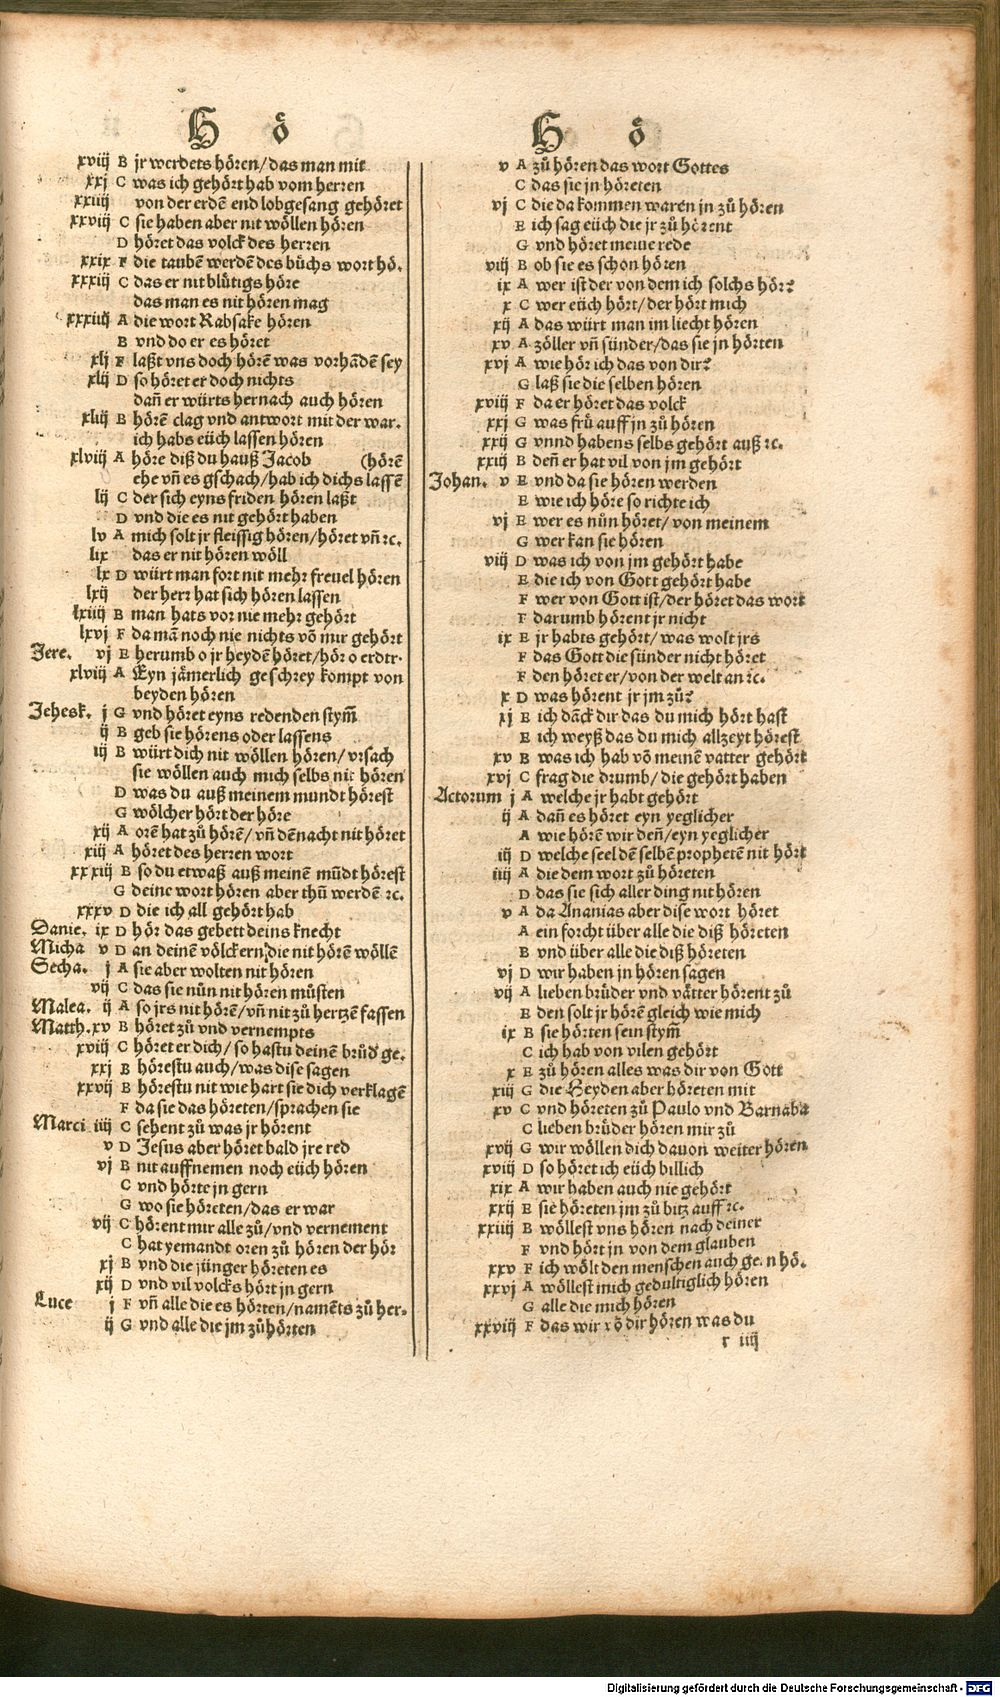 H ö
xviij B jr werdets hören/das man mit
xxj C was ich gehört hab vom herren
xxiiij von der erdē end lobgesang gehöret
xxviij C sie haben aber nit wöllen hören
D höret das volck des herren
xxix F die taubē werdē des büchs wort hö.
xxxiij C das er nit blůtigs höre
das man es nit hören mag
xxxiiij A die wort Rabsake hören
B vnd do er es höret
xlj F laßt vns doch hörē was vorhādē sey
xlij D so höret er doch nichts
dañ er würts hernach auch hören
xliij B hörē clag vnd antwort mit der war.
ich habs eüch lassen hören
xlviij A höre diß du hauß Jacob (hörē
ehe vñ es gschach/hab ich dichs lassē
lij C der sich eyns friden hören laßt
D vnd die es nit gehört haben
lv A mich solt jr fleissig hören/höret vñ ꝛc.
lix das er nit hören wöll
lx D würt man fort nit mehr freuel hören
lxij der herr hat sich hören lassen
lxiiij B man hats vor nie mehr gehört
lxvj F da mā noch nie nichts vō mir gehört
Jere. vj E herumb o jr heydē höret/hör o erdtr.
xlviij A Eyn jämerlich geschrey kompt von
beyden hören
Jehesk. j G vnd höret eyns redenden stym̄
ij B geb sie hörens oder lassens
iij B würt dich nit wöllen hören/vrsach
sie wöllen auch mich selbs nit hören
D was du auß meinem mundt hörest
G wölcher hört der höre
xij A orē hat zů hörē/vñ dēnacht nit höret
xiij A höret des herren wort
xxxiij B so du etwaß auß meinē mūdt hörest
G deine wort hören aber thů werdē ꝛc.
xxxv D die ich all gehört hab
Danie. ix D hör das gebett deins knecht
Micha v D an deinē völckern/die nit hörē wöllē
Secha. j A sie aber wolten nit hören
vij C das sie nůn nit hören müsten
Malea. ij A so jrs nit hörē/vñ nit zů hertzē fassen
Matth. xv B höret zů vnd vernempts
xviij C höret er dich/so hastu deinē brůd ge.
xxj B hörestu auch/was dise sagen
xxvij B hörestu nit wie hart sie dich verklagē
F da sie das höreten/sprachen sie
Marci iiij C sehent zů was jr hörent
v D Jesus aber höret bald jre red
vj B nit auffnemen noch eüch hören
C vnd hörte jn gern
G wo sie höreten/das er war
vij C hörent mir alle zů/vnd vernement
C hat yemandt oren zů hören der hör
xj B vnd die jünger höreten es
xij D vnd vil volcks hört jn gern
Luce j F vñ alle die es hörten/namēts zů her.
ij G vnd alle die jm zůhörten
H ö
v A zů hören das wort Gottes
C das sie jn höreten
vj C die da kommen waren jn zů hören
E ich sag eüch die jr zů hörent
G vnd höret meine rede
viij B ob sie es schon hören
ix A wer ist der von dem ich solchs hör?
x C wer eüch hört/der hört mich
xij A das würt man im liecht hören
xv A zöller vñ sünder/das sie jn hörten
xvj A wie hör ich das von dir?
G laß sie die selben hören
xviij F da er höret das volck
xxj G was frü auff jn zů hören
xxij G vnnd habens selbs gehört auß ꝛc.
xxiij B deñ er hat vil von jm gehört
Johan. v E vnd da sie hören werden
E wie ich höre so richte ich
vj E wer es nůn höret/von meinem
G wer kan sie hören
viij D was ich von jm gehört habe
E die ich von Gott gehört habe
F wer von Gott ist/der höret das wort
F darumb hörent jr nicht
ix E jr habts gehört/was wolt jrs
F das Gott die sünder nicht höret
F den höret er/von der welt an ꝛc.
x D was hörent jr jm zů?
xj E ich dāck dir das du mich hört hast
E ich weyß das du mich allzeyt hörest
xv B was ich hab vō meinē vatter gehört
xvj C frag die drumb/die gehört haben
Actorum j A welche jr habt gehört
ij A dañ es höret eyn yeglicher
A wie hörē wir deñ/eyn yeglicher
iij D welche seel dē selbē prophetē nit hört
iiij A die dem wort zů höreten
D das sie sich aller ding nit hören
v A da Ananias aber dise wort höret
A ein forcht über alle die diß höreten
B vnd über alle die diß höreten
vj D wir haben jn hören sagen
vij A lieben brůder vnd vätter hörent zů
E den solt jr hörē gleich wie mich
ix B sie hörten sein stym̄
C ich hab von vilen gehört
x E zů hören alles was dir von Gott
xiij G die Heyden aber höreten mit
xv C vnd höreten zů Paulo vnd Barnaba
C lieben brůder hören mir zů
xvij G wir wöllen dich dauon weiter hören
xviij D so höret ich eüch billich
xix A wir haben auch nie gehört
xxij E sie höreten jm zů bitz auff ꝛc.
xxiiij B wöllest vns hören nach deiner
F vnd hört jn von dem glauben
xxv F ich wölt den menschen auch gern hö.
xxvj A wöllest mich gedultiglich hören
G alle die mich hören
xxviij F das wir vō dir hören was du
r iiij
Digitalisierung gefördert durch die Deutsche Forschungsgemeinschaft - DFG